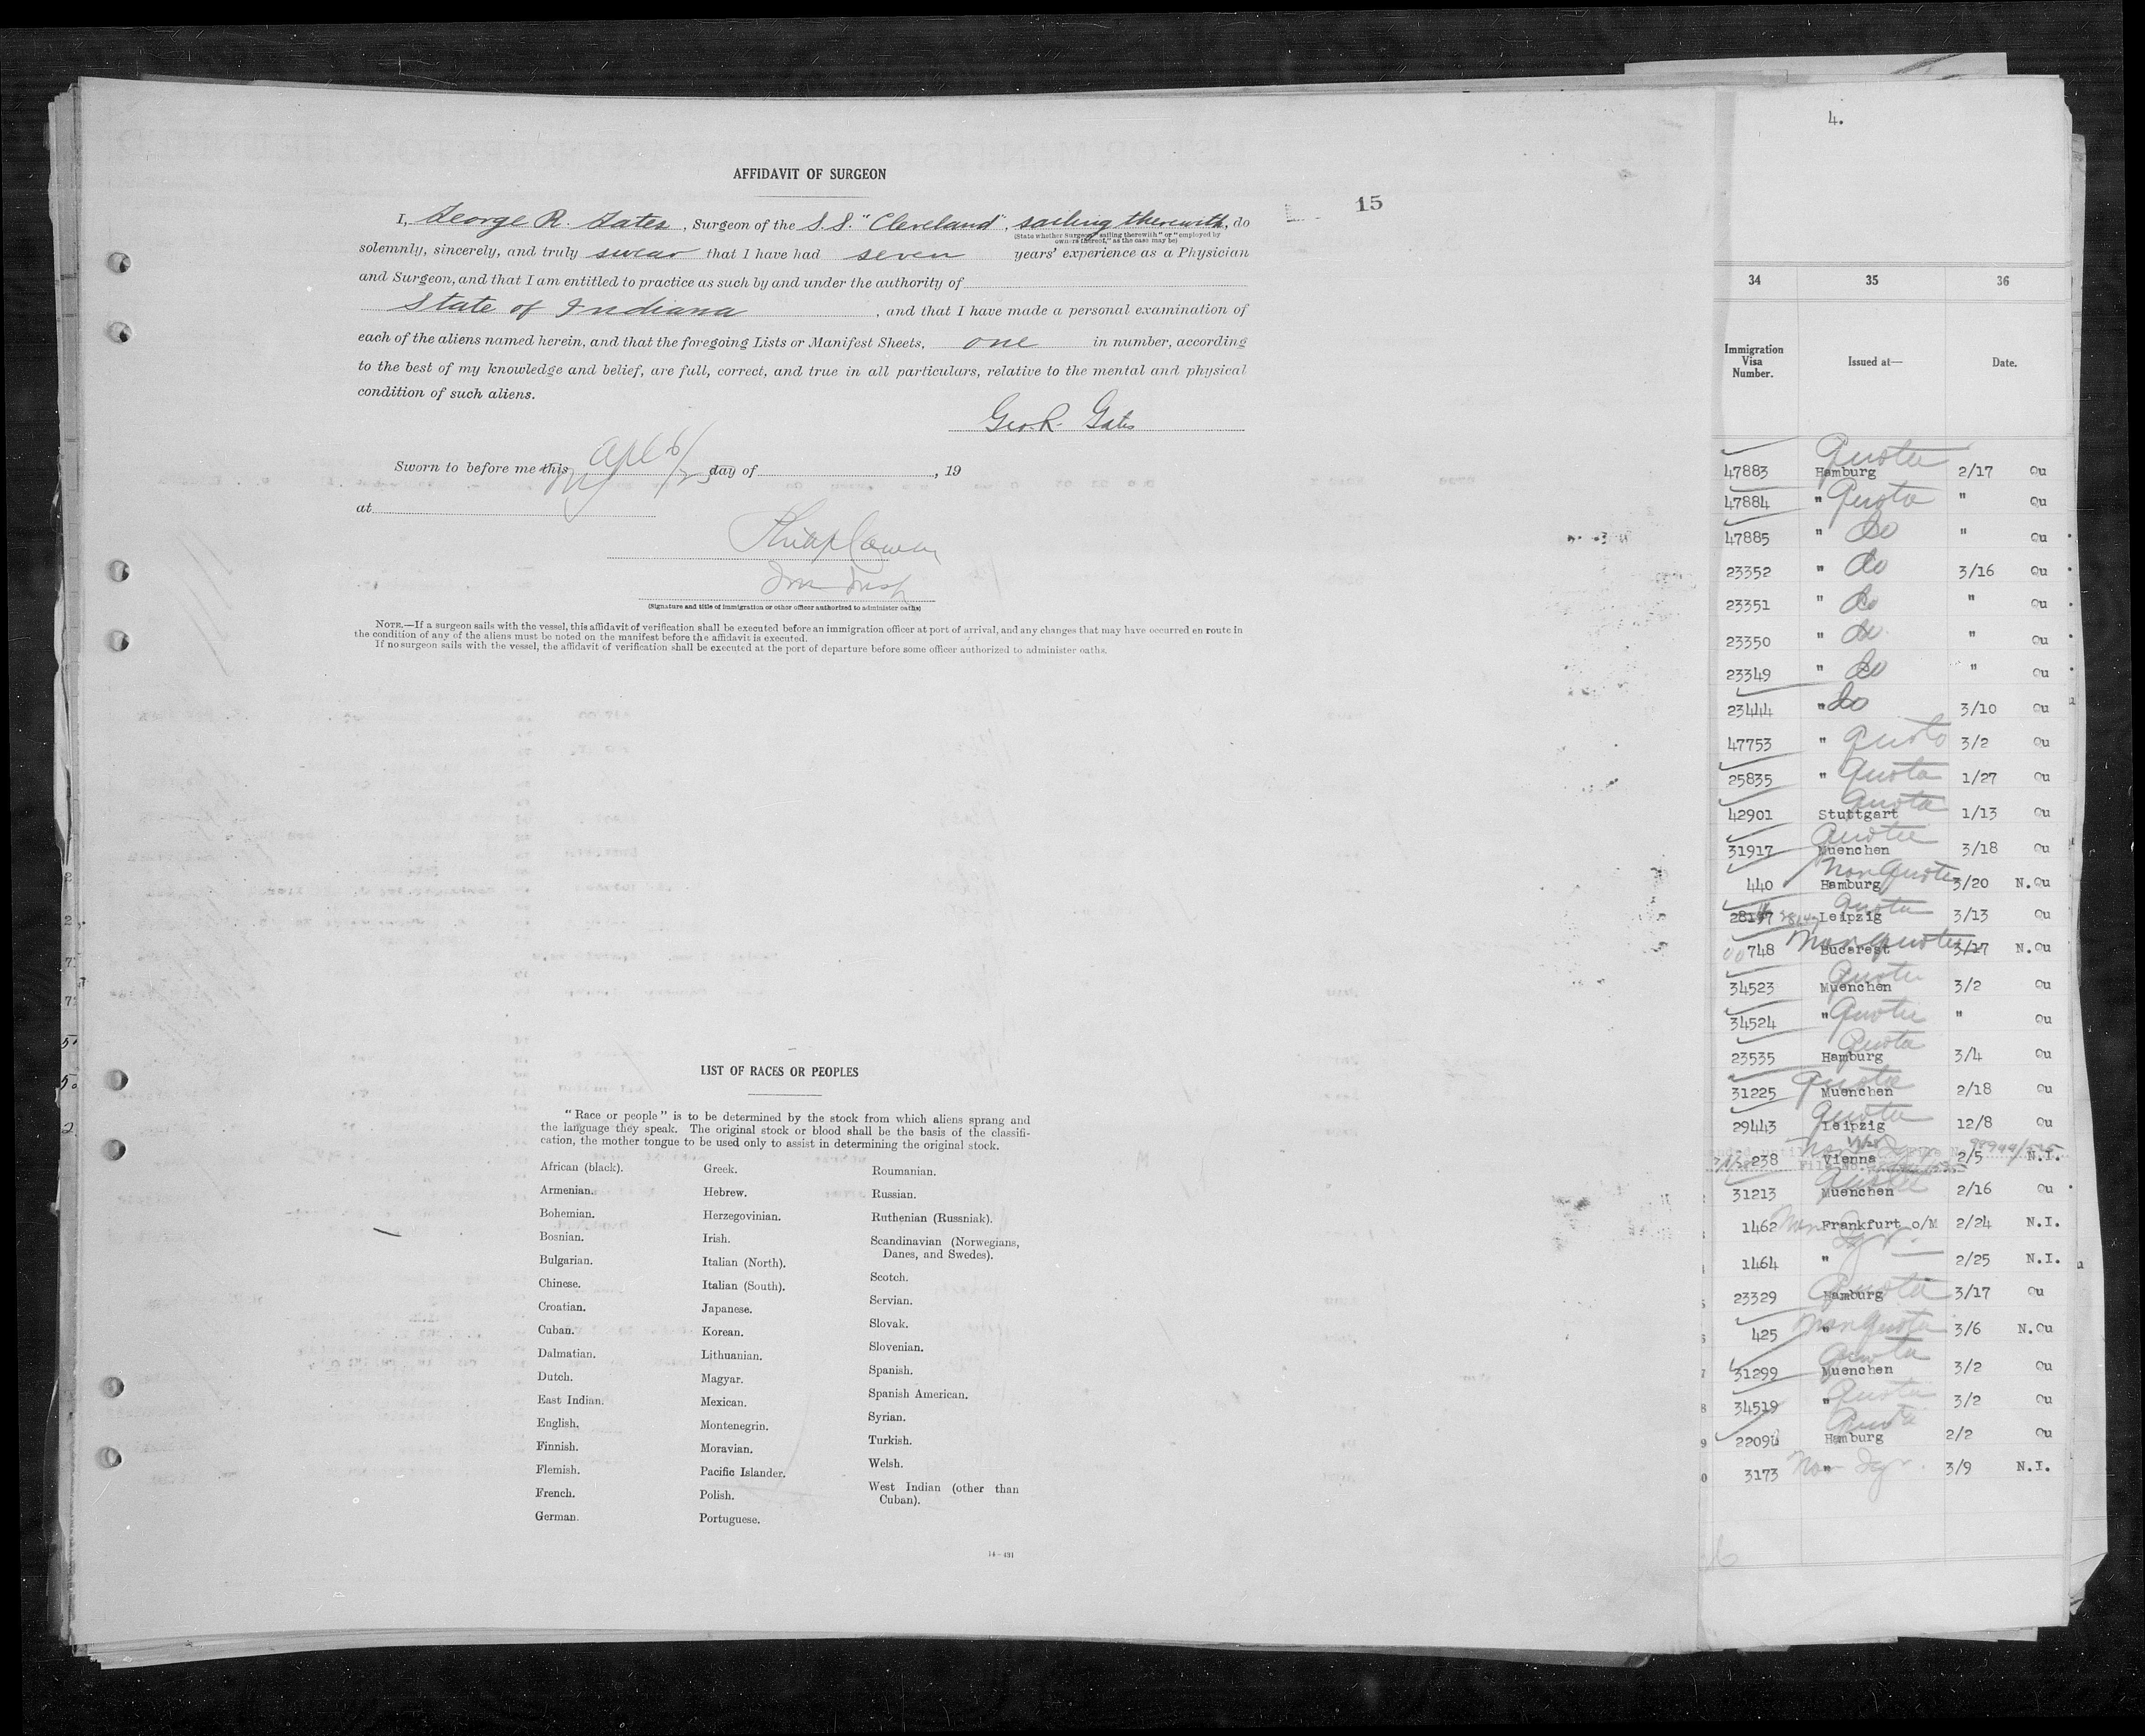 AFFIDAVIT OF SURGEON
15
I, George R. Gates, Surgeon of the S.S. "Cleveland", sailing therewith, do
(State whether surgeon "sailing therewith" or "employed by
owners thereof," as the case may be)
solemnly, sincerely, and truly swear that I have had seven years' experience as a Physician
and Surgeon, and that I am entitled to practice as such by and under the authority of
State of Indiana, and that I have made a personal examination of
each of the aliens named herein, and that the foregoing Lists or Manifest Sheets, one in number, according
to the best of my knowledge and belief, are full, correct, and true in all particulars, relative to the mental and physical
condition of such aliens.
Geo. R. Gates
Sworn to before me this Apl 6/25 day of , 19
at
Philip Cowen
Imm Insp
(Signature and title of immigration or other officer authorized to administer oaths)
NOTE.—If a surgeon sails with the vessel, this affidavit of verification shall be executed before an immigration officer at port of arrival, and any changes that may have occurred en route in
the condition of any of the aliens must be noted on the manifest before the affidavit is executed.
If no surgeon sails with the vessel, the affidavit of verification shall be executed at the port of departure before some officer authorized to administer oaths.
LIST OF RACES OR PEOPLES
"Race or people" is to be determined by the stock from which aliens sprang and
the language they speak. The original stock or blood shall be the basis of the classifi-
cation, the mother tongue to be used only to assist in determining the original stock.
African (black).
Armenian.
Bohemian.
Bosnian.
Bulgarian.
Chinese.
Croatian.
Cuban.
Dalmatian.
Dutch.
East Indian.
English.
Finnish.
Flemish.
French.
German.
Greek.
Hebrew.
Herzegovinian.
Irish.
Italian (North).
Italian (South).
Japanese.
Korean.
Lithuanian.
Magyar.
Mexican.
Montenegrin.
Moravian.
Pacific Islander.
Polish.
Portuguese.
Roumanian.
Russian.
Ruthenian (Russniak).
Scandinavian (Norwegians,
Danes, and Swedes).
Scotch.
Servian.
Slovak.
Slovenian.
Spanish.
Spanish American.
Syrian.
Turkish.
Welsh.
West Indian (other than
Cuban).
14—431
4.
34 35 36
Immigration
Visa
Number.
Issued at—
Date.
47883 Hamburg Quota 2/17 Qu
47884 " Quota " Qu
47885 " do " Qu
23352 " do 3/16 Qu
23351 " do " Qu
23350 " do " Qu
23349 " do " Qu
23444 " do 3/10 Qu
47753 " Quota 3/2 Qu
25835 " Quota 1/27 Qu
42901 Stuttgart Quota 1/13 Qu
31917 Muenchen Quota 3/18 Qu
440 Hamburg Non Quota 3/20 N.Qu
Leipzig Quota 3/13 Qu
748 Bucarest Non Quota 3/17 N.Qu
34523 Muenchen Quota 3/2 Qu
34524 " Quota " Qu
23535 Hamburg Quota 3/4 Qu
31225 Muenchen Quota 2/18 Qu
29443 Leipzig Quota 12/8 Qu
238 Vienna 2/5 N.I.
31213 Muenchen Quota 2/16 Qu
1462 Frankfurt o/M Non Igr. 2/24 N.I.
1464 " 2/25 N.I.
23329 Hamburg Quota 3/17 Qu
425 " Non Quota 3/6 N.Qu
31299 Muenchen Quota 3/2 Qu
34519 " Quota 3/2 Qu
Hamburg Quota 2/2 Qu
3173 " Non Igr. 3/9 N.I.